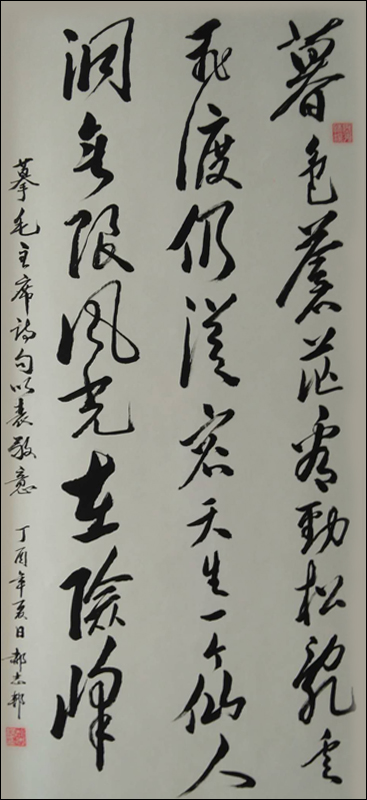 暮色蒼茫看勁松亂云
飛渡仍從容天生一个仙人
洞無限風光在險峰
摹毛主席詩句以表敬意 丁酉年夏日 郝志邦